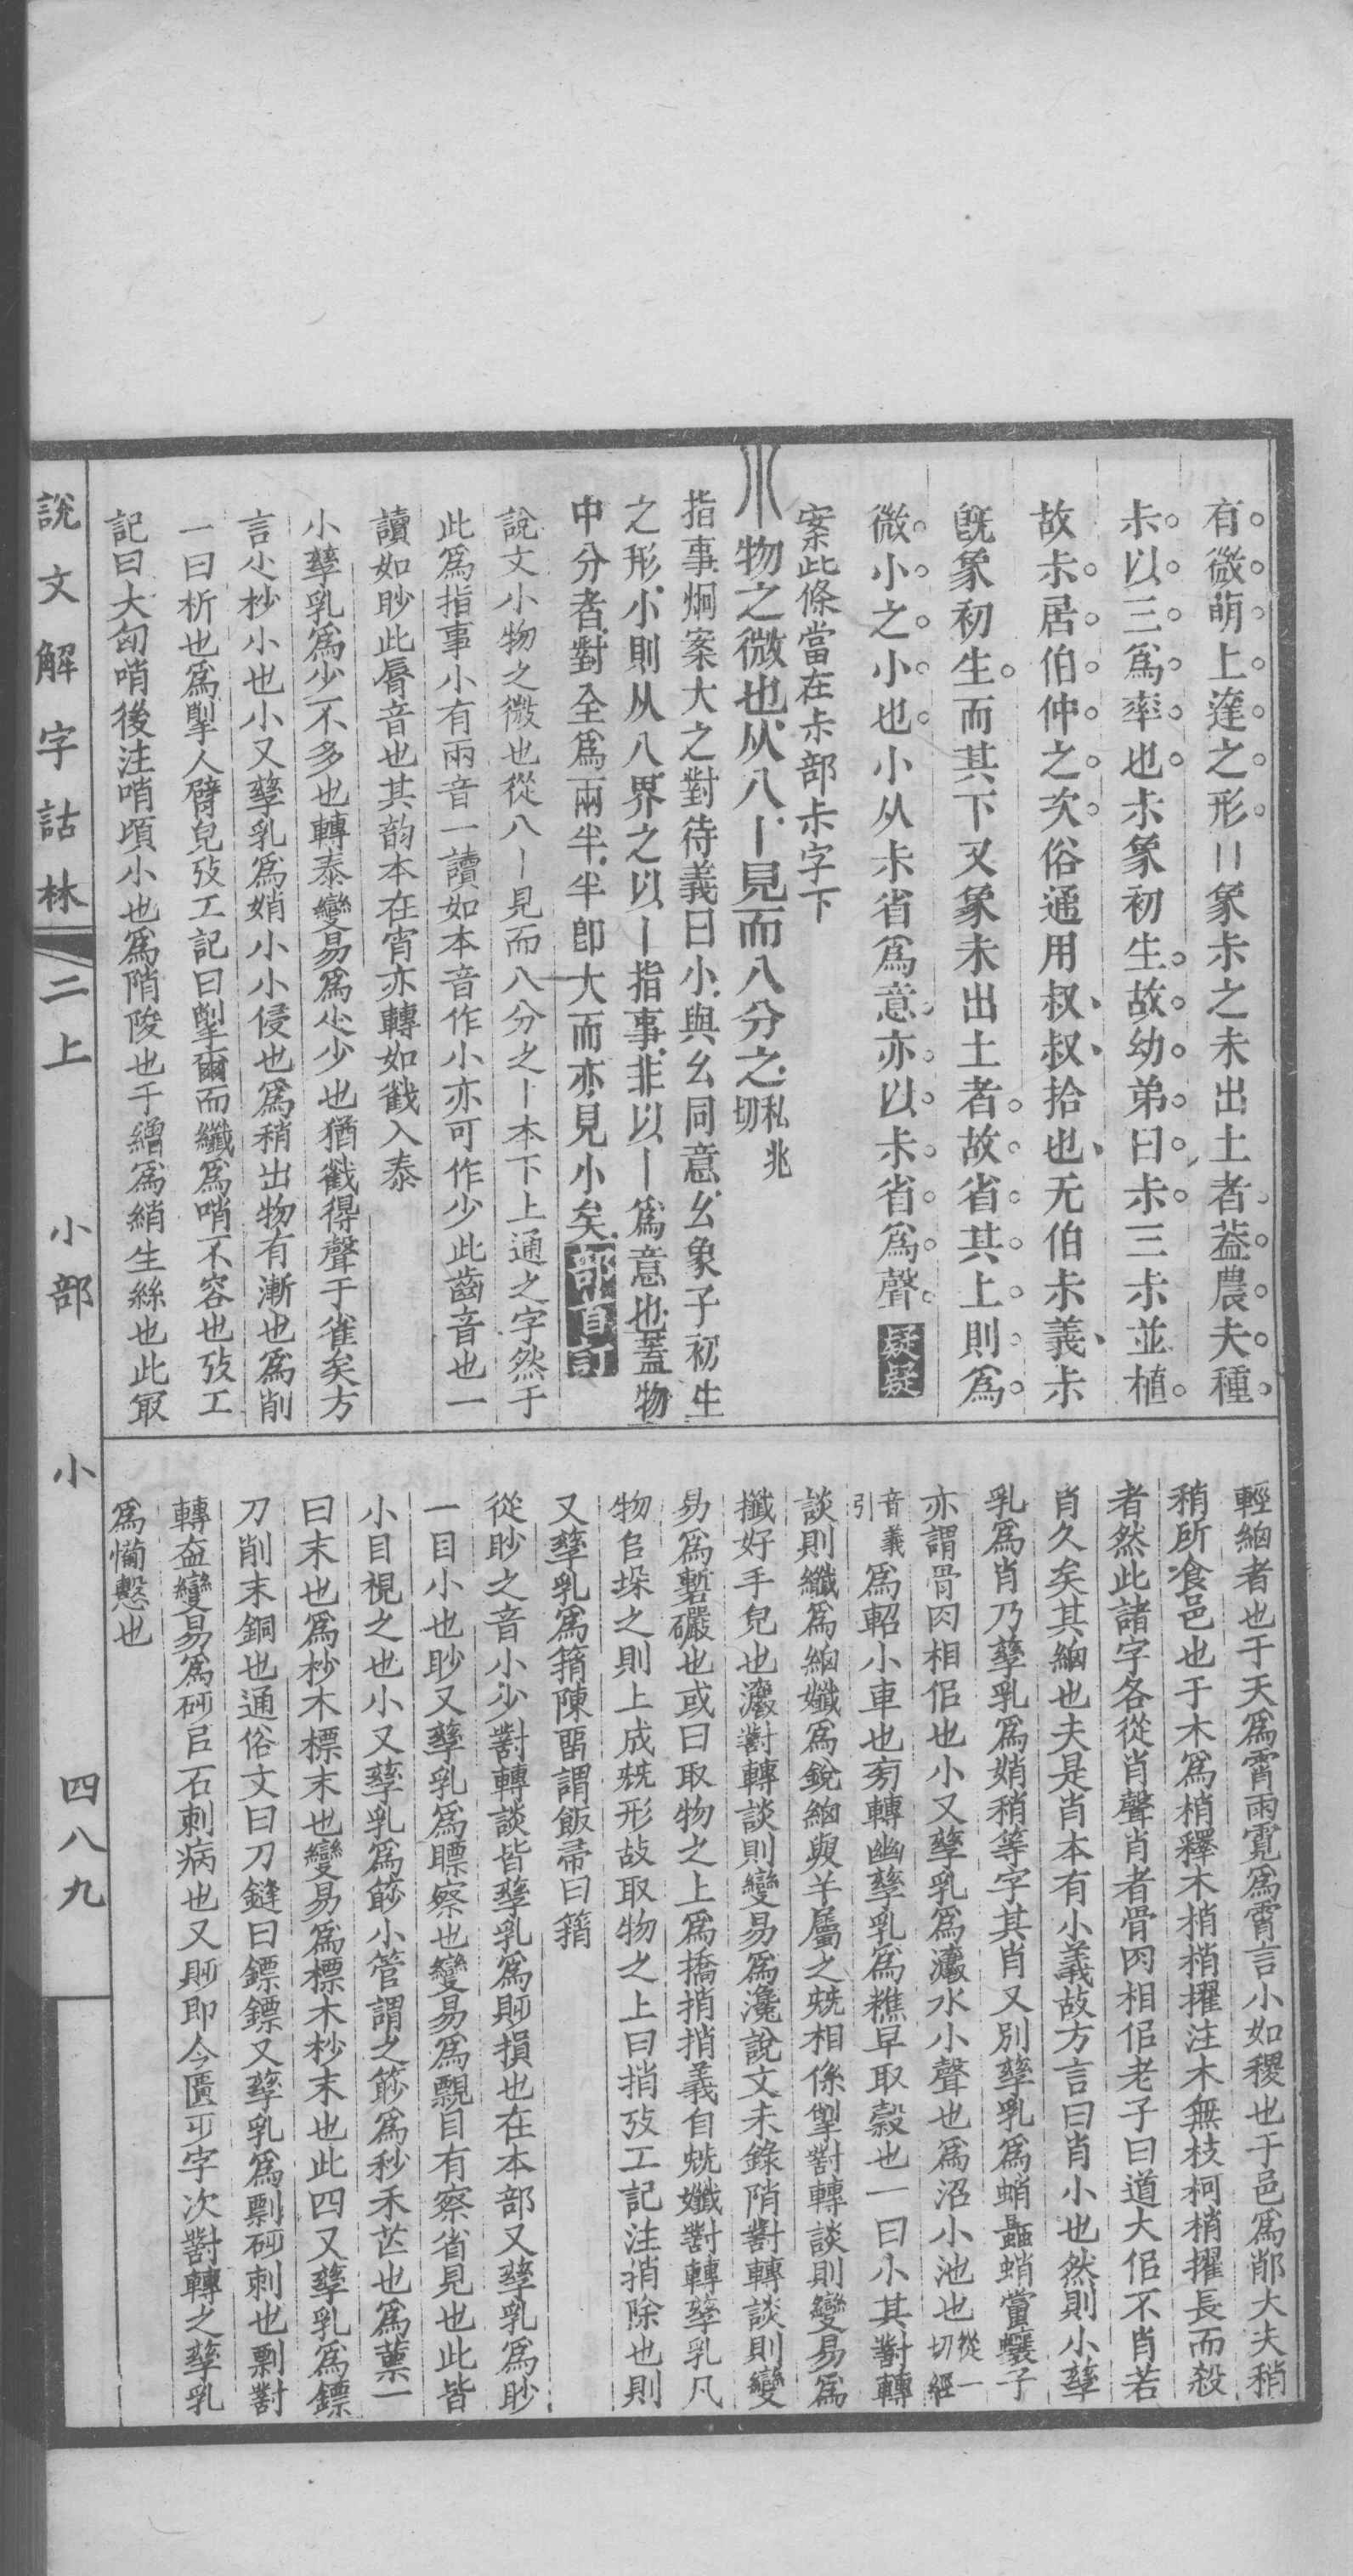 有微萌上達之形〢象尗之未出土者葢農夫種
尗以三爲率也尗象初生故幼弟曰尗三尗並植
故尗居伯仲之次俗通用叔叔拾也无伯尗義尗
旣象初生而其下又象未出土者故省其上則爲
微小之小也小从尗省爲意亦以尗省爲聲疑疑
案此條當在尗部尗字下
物之微也从八丨見而八分之私兆切
指事炯案大之對待義曰小與幺同意幺象子初生
之形小則从八界之以丨指事非以丨爲意也蓋物
中分者對全爲兩半半卽大而亦見小矣部首訂
說文小物之微也從八丨見而八分之丨本下上通之字然于
此爲指事小有兩音一讀如本音作小亦可作少此齒音也一
讀如眇此脣音也其韵本在宵亦轉如戳入泰
小孳乳爲少不多也轉泰變易爲尐少也猶戳得聲于雀矣方
言尐杪小也小又孳乳爲娋小小侵也爲稍出物有漸也爲削
一曰析也爲掣人臂皃攷工記曰掣爾而纖爲哨不容也攷工
記曰大匈哨後注哨頃小也爲陗陵也于繒爲綃生絲也此冣
輕細者也于天爲霄雨霓爲霄言小如稷也于邑爲䣠大夫稍
稍所飡邑也于木爲梢釋木梢梢擢注木無枝柯梢擢長而殺
者然此諸字各從肖聲肖者骨肉相佀老子曰道大佀不肖若
肖久矣其細也夫是肖本有小義故方言曰肖小也然則小孳
乳爲肖乃孳乳爲娋稍等字其肖又別孳乳爲蛸蟲蛸當蠰子
亦謂骨肉相佀也小又孳乳爲瀥水小聲也爲沼小池也從一切經
音義引爲軺小車也菊轉幽孳乳爲糕早取穀也一曰小其對轉
談則纖爲細孅爲銳細與羊屬之㲋相係掣對轉談則變易爲
攕好手皃也瀥對轉談則變易爲瀺說文未錄陗對轉談則變
易爲塹礹也或曰取物之上爲撟捎捎義自㲋孅對轉孳乳凡
物㠯垛之則上成㲋形故取物之上曰捎攷工記注捎除也則
又孳乳爲䈰陳畱謂飯帚曰䈰
從眇之音小少對轉談皆孳乳爲覂損也在本部又孳乳爲眇
一目小也眇又孳乳爲瞟察也變易爲覹目有察省見也此皆
小目視之也小又孳乳爲篎小管謂之篎爲秒禾芒也爲蔈一
曰末也爲杪木標末也變易爲標木杪末也此四又孳乳爲鏢
刀削末銅也通俗文曰刀鏠曰鏢鏢又孳乳爲剽砭刺也剽對
轉盍變易爲砭㠯石刺病也又貶卽今匾㔷字次對轉之孳乳
爲憊憋也
說文解字詁林 二上 小部 小 四八九